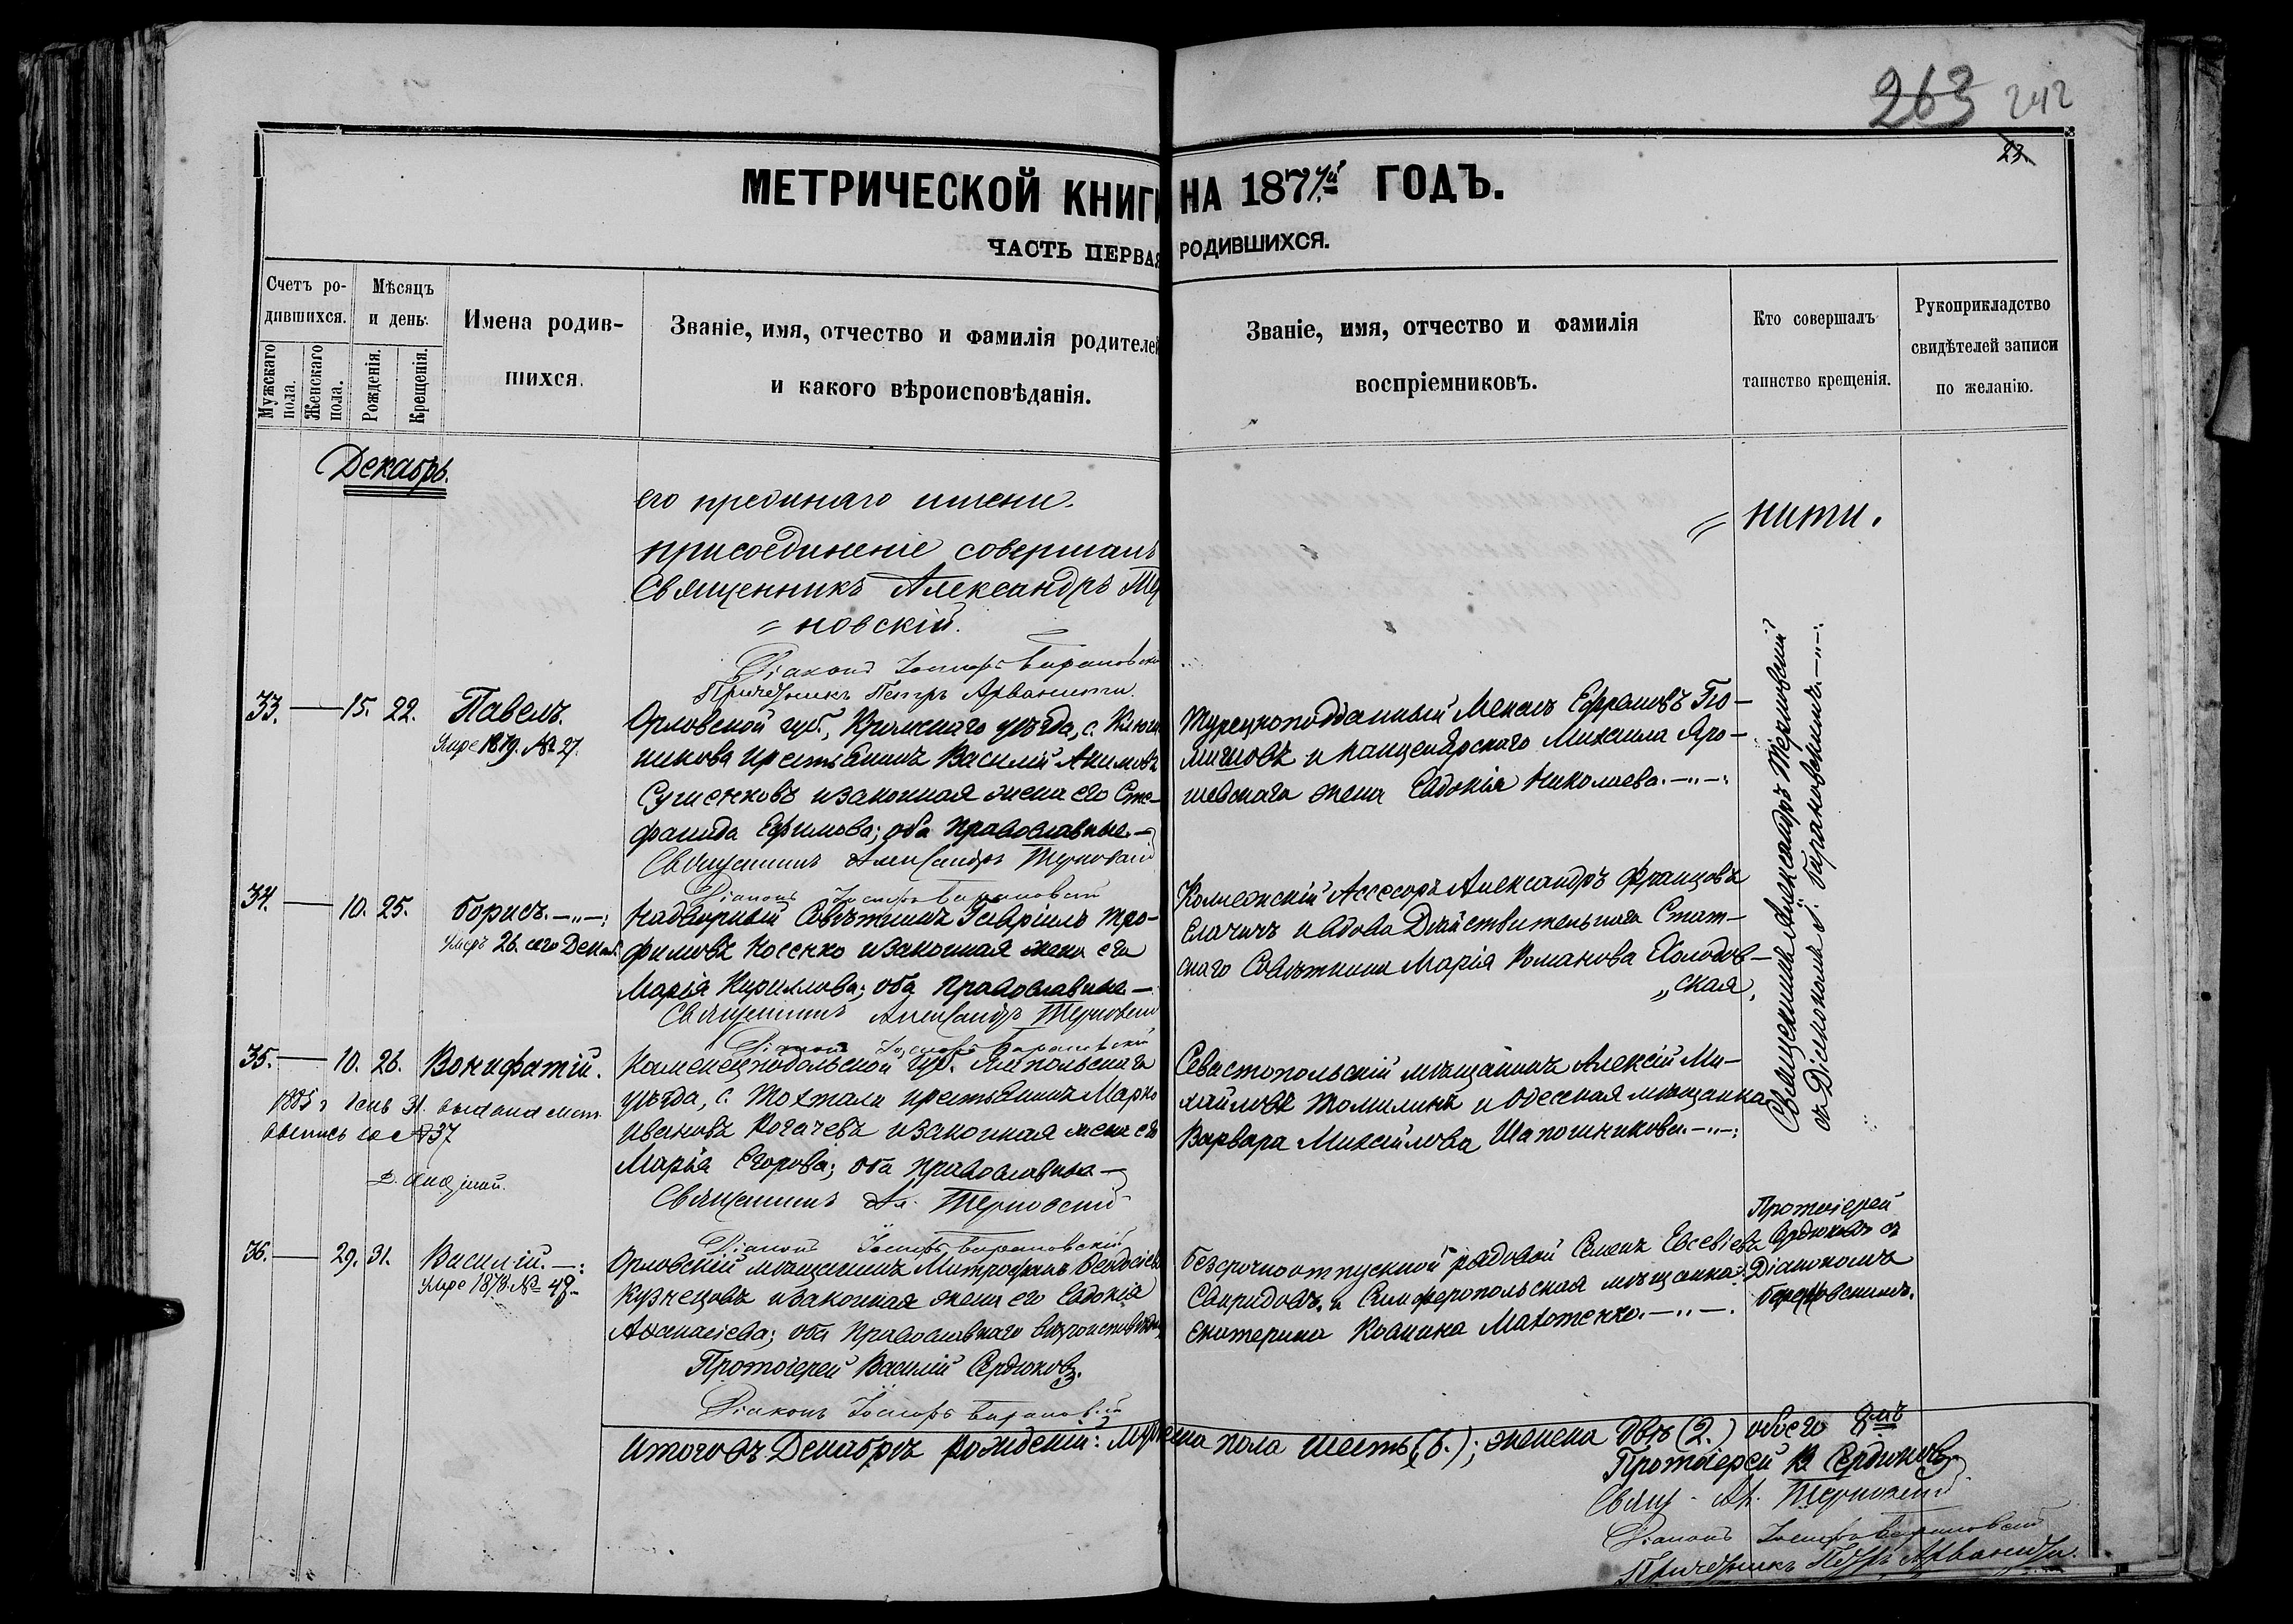 263 242
23.
МЕТРИЧЕСКОЙ КНИГИ НА 1877й ГОДЪ.
ЧАСТЬ ПЕРВАЯ РОДИВШИХСЯ.
Счетъ ро-
дившихся.
Мужскаго
пола.
Женскаго
пола.
Мѣсяцъ
и день.
Рожденія.
Крещенія.
Имена родив-
шихся.
Званіе, имя, отчество и фамилія родителей
и какого вѣроисповѣданія.
Званіе, имя, отчество и фамилія
воспріемниковъ.
Кто совершалъ
таинство крещенія.
Рукоприкладство
свидѣтелей записи
по желанію.
Декабрь.
его имени.
присоединеніе совершалъ
Священникъ Александръ Тер
= новскій.
Діаконъ Іосифъ Барановскій
Причетникъ Петръ Арванити.
= нити.
33. — 15. 22. Павелъ.
Умре 1879. № 27.
Орловской губ., Кромскаго уѣзда, с.
никова крестьянинъ Василій Акимовъ
и законная жена его Сте-
фанида Ефимова; оба православные.—
Священникъ Александръ Терновскій
Діаконъ Іосифъ Барановскій
Турецкоподданный
и канцелярскаго Михаила Яро-
шевскаго жена Евдокія Николаева.—"—:
Священникъ Александръ Терновскій
съ Діакономъ І. Барановскимъ.—"—:
34. — 10. 25. Борисъ.—"—:
Умеръ 26. сего Декаб.
Надворный Совѣтникъ Гавріилъ Тро-
фимовъ Косенко и законная жена его
Марія Кириллова; оба православные.—
Священникъ Александръ Терновскій
Діаконъ Іосифъ Барановскій
Коллежскій Ассесоръ Александръ Францовъ
и вдова Дѣйствительнаго Стат-
скаго Совѣтника Марія Романова Холодов-
"ская.
35. — 10. 26. Вонифатій.
1885 г. 31. выдана метр.
выпись за № 37
Каменецподольской губ. Ямпольскаго
уѣзда, с. крестьянинъ Марко
Ивановъ Рогачевъ и законная жена его
Марія Егорова; оба православные—
Священникъ Ал. Терновскій
Діаконъ Іосифъ Барановскій
Севастопольскій мѣщанинъ Алексій Ми-
хайловъ Томилинъ и Одесская мѣщанка
Варвара Михайлова Шапошникова.—"—:
36. — 29. 31. Василій.—:
Умре 1878. № 48.
Орловскій мѣщанинъ Митрофанъ
Кузнецовъ и законная жена его Евдокія
Аѳанасіева; оба православнаго вѣроисповѣданія
Протоіерей Василій Сердюковъ.
Діаконъ Іосифъ Барановскій
Безсрочноотпускной рядовой Семенъ Евсевіевъ
Свиридовъ и Симферопольская мѣщанка
Екатерина Махотенко.—"—.
Протоіерей
Сердюковъ съ
Діакономъ
Барановскимъ.
Итого въ Декабрѣ рожденій: мужеска пола шесть (6.); женска двѣ (2.) обоего 8мъ
Протоіерей В. Сердюковъ
Свящ. Ал. Терновскій
Діаконъ Іосифъ Барановскій
Причетникъ Петръ Арванити.